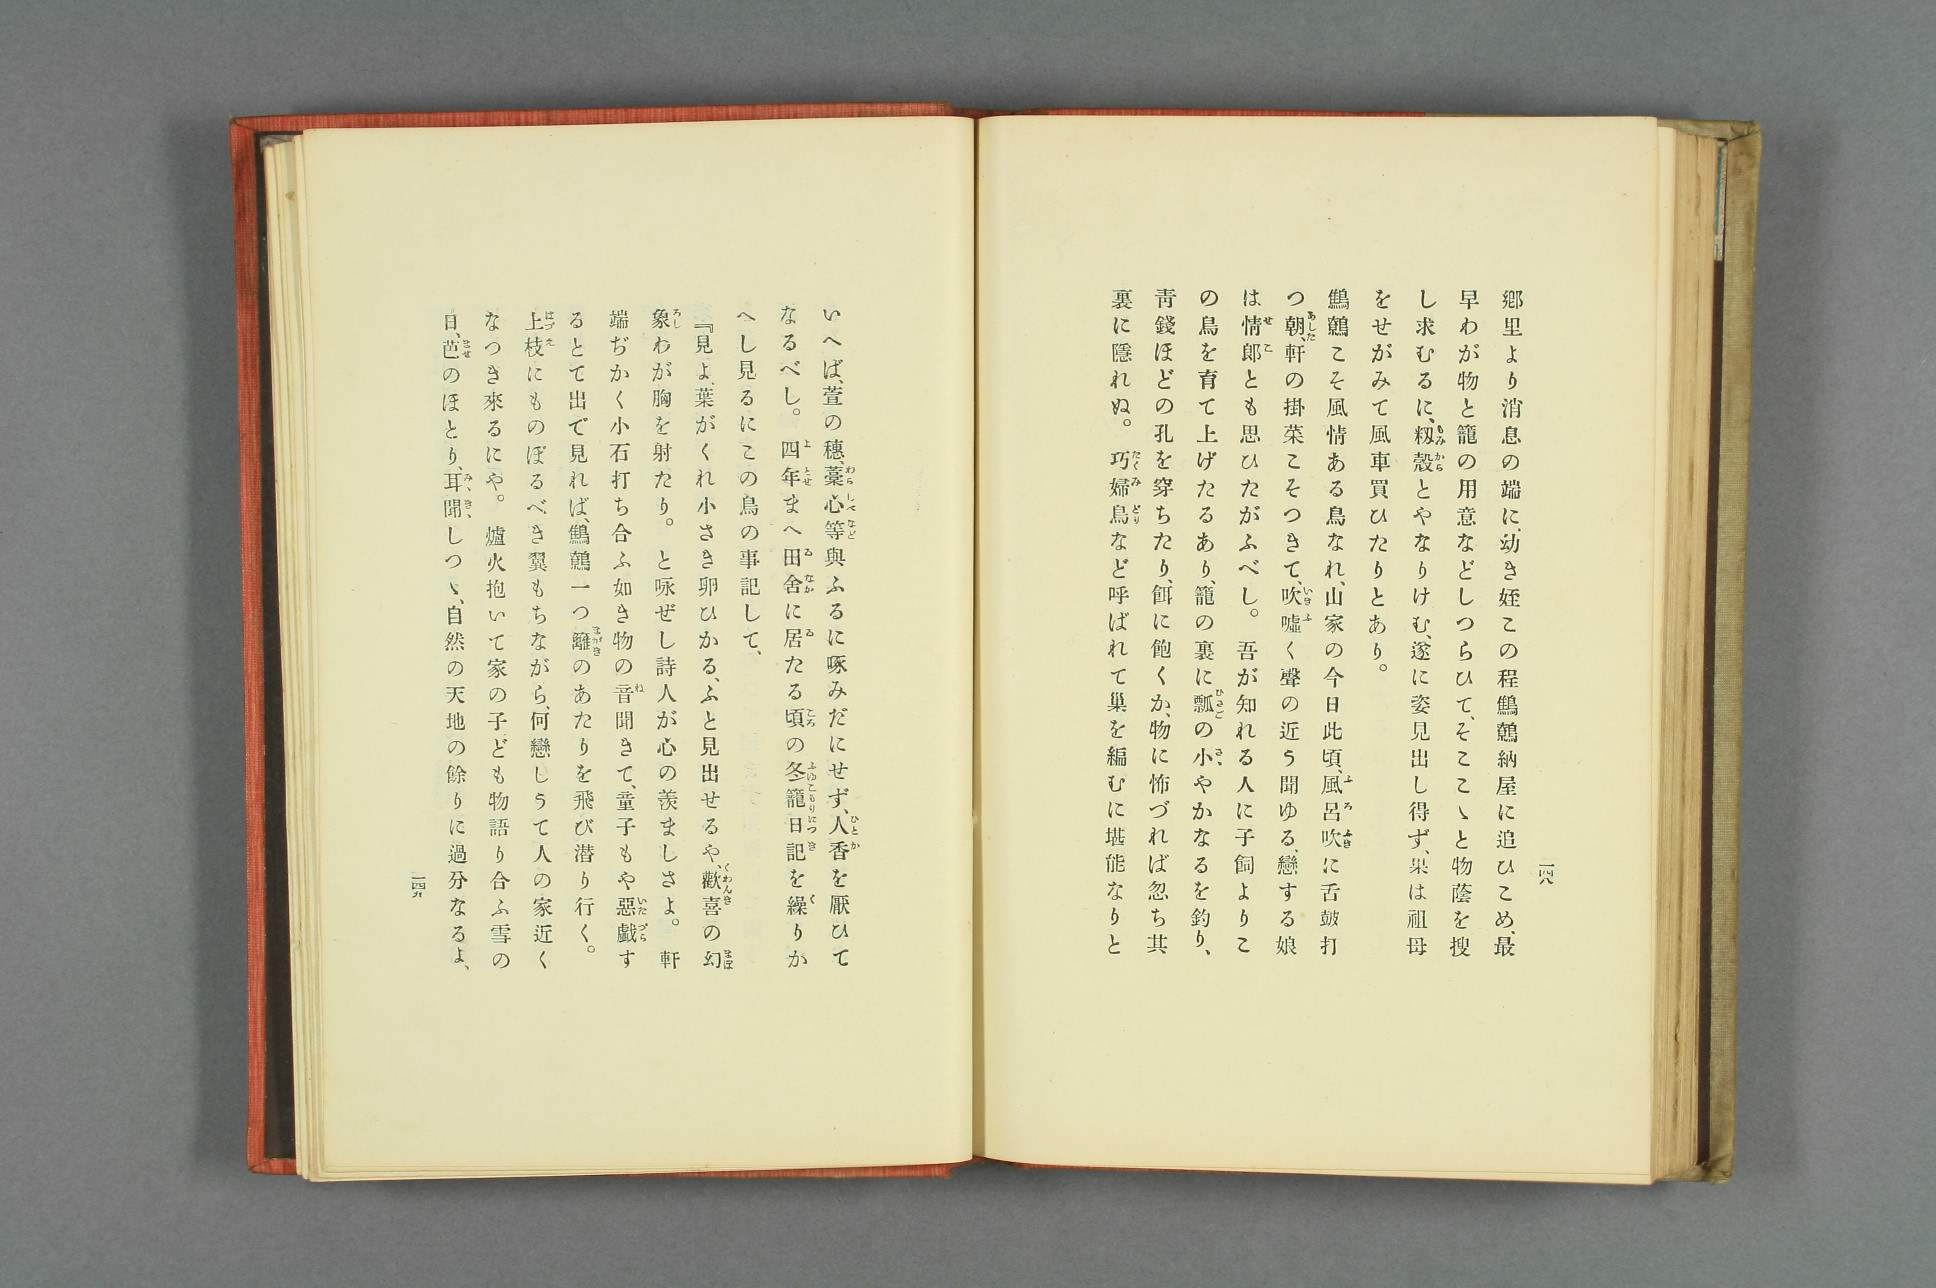 鄕里より消息の端に、幼き姪この程鷦鷯納屋に追ひこめ、最
早わが物と籠の用意などしつらひて、そこここと物蔭を搜
し求むるに、籾殼とやなりけむ、遂に姿見出し得ず、果は祖母
をせがみて風車買ひたりとあり。
鷦鷯こそ風情ある鳥なれ、山家の今日此頃、風呂吹に舌皷打
つ朝、軒の掛菜こそつきて、吹噓く聲の近う聞ゆる、戀する娘
は情郞とも思ひたがふべし。吾が知れる人に子飼よりこ
の鳥を育て上げたるあり、籠の裏に瓢の小やかなるを釣り、
靑錢ほどの孔を穿ちたり、餌に飽くか、物に怖づれば忽ち其
裏に隱れぬ。巧婦鳥など呼ばれて巢を編むに堪能なりと
一四八
いへば、萱の穗、藁心等與ふるに啄みだにせず、人香を厭ひて
なるべし。四年まへ田舍に居たる頃の冬籠日記を繰りか
へし見るにこの鳥の事記して、
『見よ、葉がくれ小さき卵ひかる、ふと見出せるや、歡喜の幻
象わが胸を射たり。と咏ぜし詩人が心の羨ましさよ。軒
端ぢかく小石打ち合ふ如き物の音聞きて、童子もや惡戲す
るとて出で見れば、鷦鷯一つ籬のあたりを飛び潜り行く。
上枝にものぼるべき翼もちながら、何戀しうて人の家近く
なつき來るにや。爐火抱いて家の子ども物語り合ふ雪の
日、芭のほとり、耳聞しつゝ、自然の天地の餘りに過分なるよ、
一四九